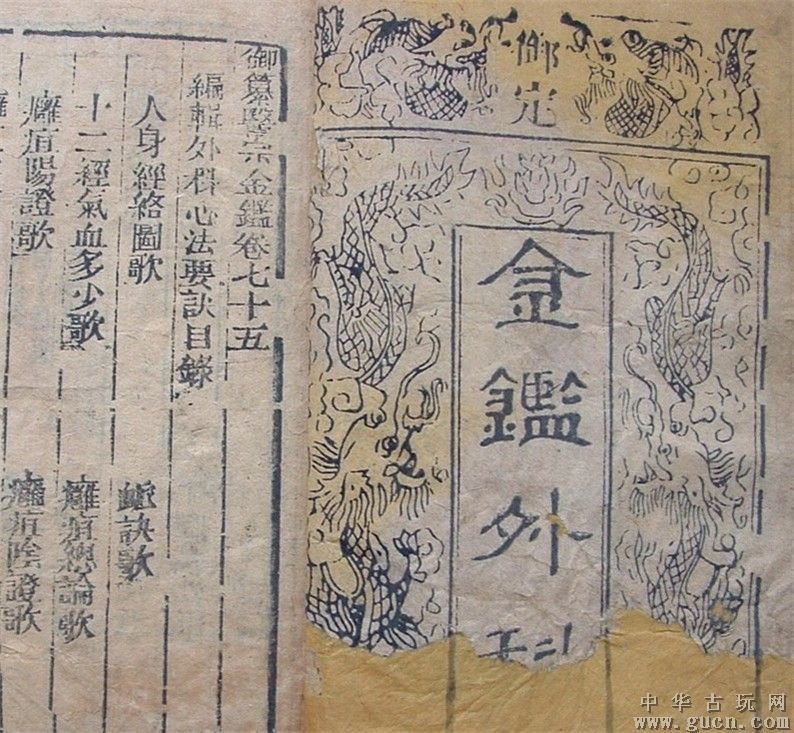 御定
金鑑外
御纂醫宗金鑑卷七十五
編輯外科心法要訣目錄
人身經絡圖歌 訣歌
十二經氣血多少歌 癰疽總論歌
癰疽陽證歌 癰疽陰證歌
中华古玩网
www.gucn.com